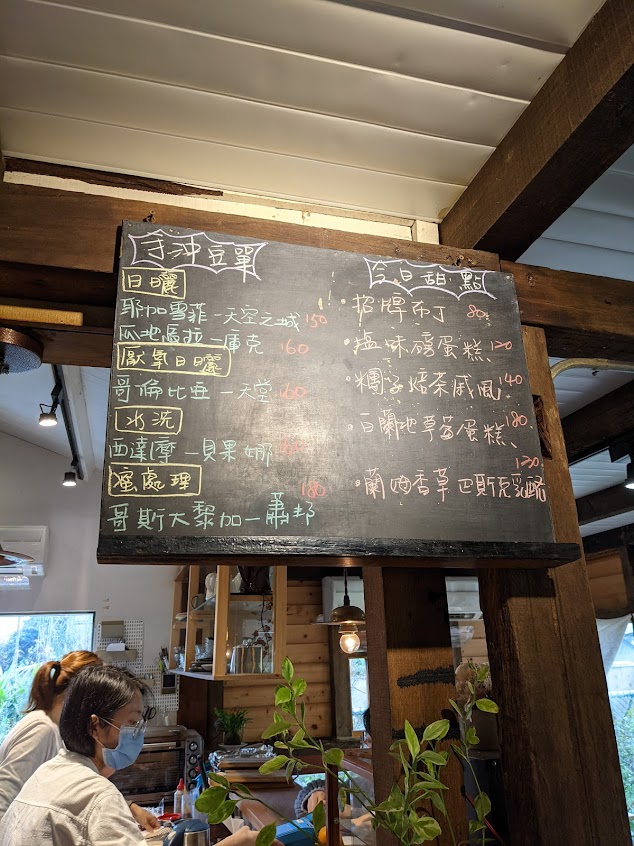 手沖豆單
日曬
耶加雪菲 - 天空之城 150
瓜地馬拉 - 庫克 160
厭氧日曬
哥倫比亞 - 天堂 160
水洗
西達摩 - 貝果娜
蜜處理
180
哥斯大黎加 - 蕭邦
今日甜點
·招牌布丁 80
·塩味磅蛋糕 120
·糰子焙茶戚風 140
·白蘭地草莓蛋糕 180
120
·蘭姆香草巴斯克乳酪